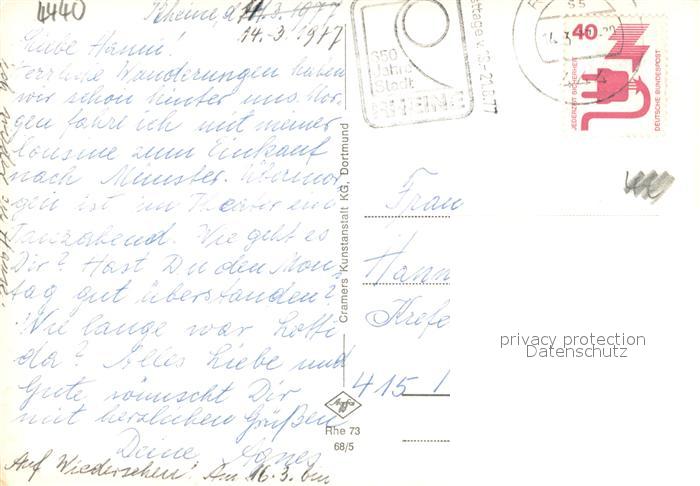 4440
Rheine d. 14.3.1977
14.3.1977
Liebe Hanni!
Herrliche Wanderungen haben
wir schon hinter uns. Mor-
gen fahre ich mit meiner
Cousine zum Einkauf
nach Münster. Übermor-
gen ist im Theater ein
Tanzabend. Wie geht es
Dir? Hast Du den Mon-
tag gut überstanden?
Wie lange war Lotti
da? Alles Liebe und
Gute wünscht Dir
mit herzlichen Grüßen
Deine Agnes
Auf Wiedersehen! Am 16.3. bin
ich wieder zu Hause.
Cramers Kunstanstalt KG, Dortmund
Rhe 73
68/5
650
Jahre
Stadt
RHEINE
40
JEDERZEIT SICHERHEIT
DEUTSCHE BUNDESPOST
Frau
Hann
Krefe
415 1
privacy protection
Datenschutz